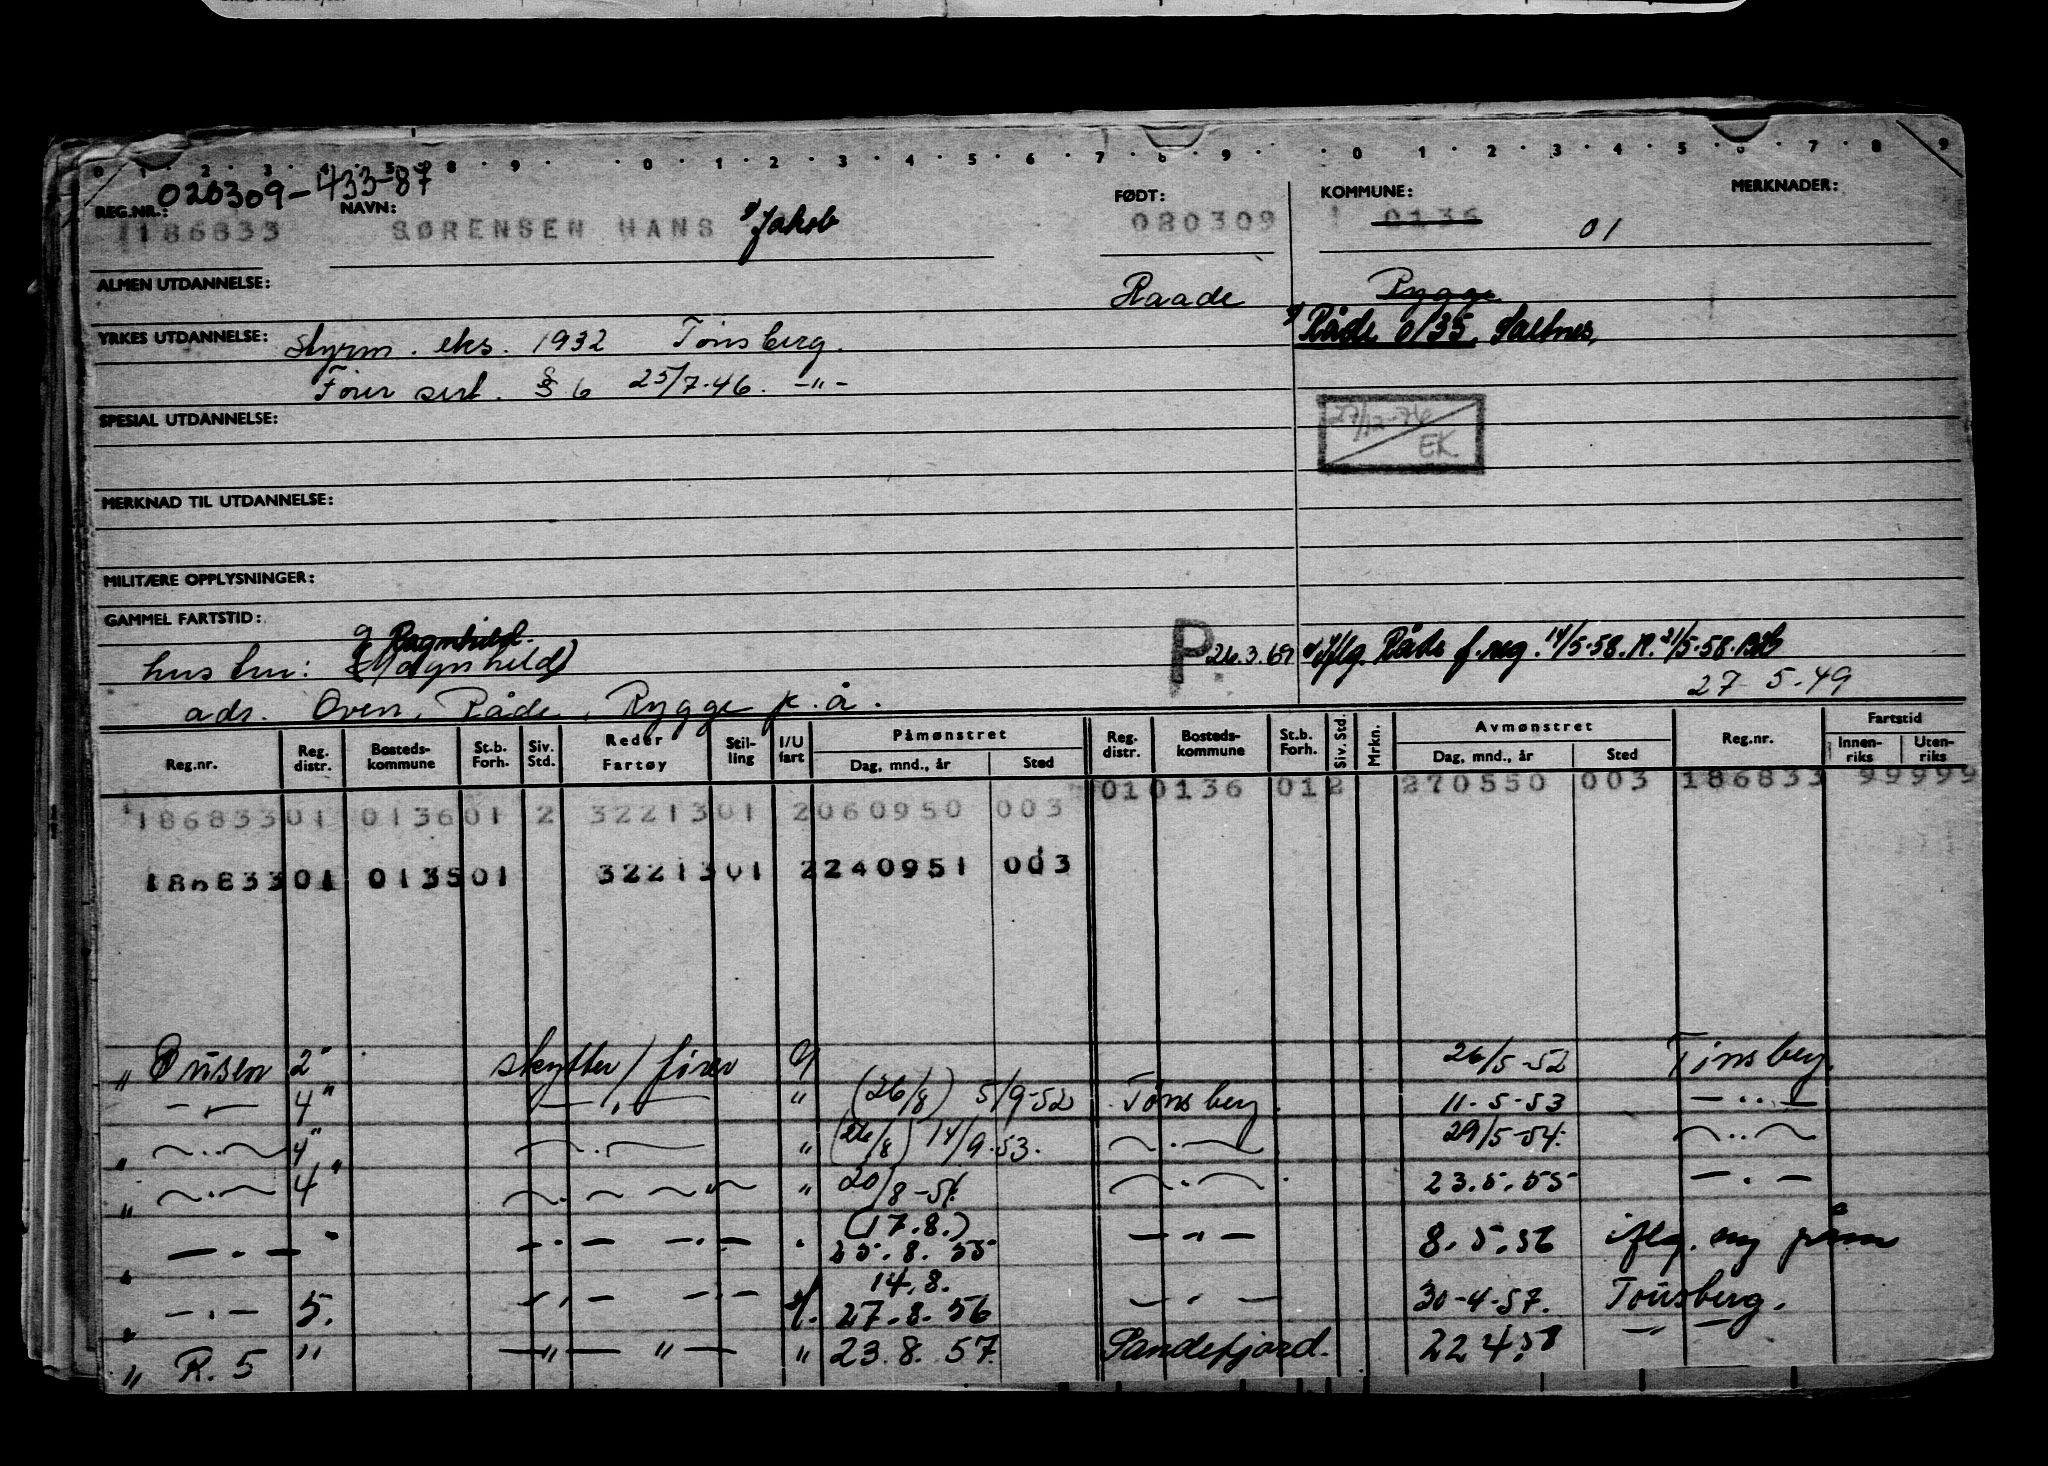 0 1 2 3 8 9 0 1 2 3 4 5 6 7 8 9 0 1 2 3 4 5 6 7 8 9
020309-43387
REG.NR.: NAVN: FØDT: KOMMUNE: MERKNADER:
186833 SØRENSEN HANS Jakob 080309 0136 01
ALMEN UTDANNELSE: Raade Rygge
YRKES UTDANNELSE: Styrm. eks. 1932 Tønsberg. Råde 0135. Saltnes.
Fører sert. § 6 25/7-46. -"-
SPESIAL UTDANNELSE: 27/12-76 EK
MERKNAD TIL UTDANNELSE:
MILITÆRE OPPLYSNINGER:
GAMMEL FARTSTID:
Ragnhild.
hustru: (Magnhild) P 26.3.69 iflg. Råde f.reg. 14/5-58. R. 21/5-58.
27-5-49
adr. Oven, Råde, Rygge p.å.
Reg.nr. Reg. distr. Bosteds-kommune St.b. Forh. Siv. Std. Reder Fartøy Stil-ling I/U fart Påmønstret Dag, mnd., år Sted Reg. distr. Bosteds-kommune St.b. Forh. Siv. Std. Mrkn. Avmønstret Dag, mnd., år Sted Reg.nr. Fartstid Innen-riks Uten-riks
010136 012 270550 003 186833 99999
18683301 013601 2 3221301 2060950 003
18683301 013501 3221301 2240951 003
" Busen 2" skytter/fører 26/5-52 Tønsberg.
-"- 4" -"- " (26/8) 5/9-52 Tønsberg. 11-5-53 -"-
" -"- 4" -"- " (26/8) 14/9-53. -"- 29/5-54. -"-
" -"- 4" -"- -"- " 20/8-54. -"- 23.5.55 -"-
(17.8.)
" -"- " -"- -"- " 25.8.55 -"- 8.5.56 iflg. ny påm
14.8.
" -"- 5. -"- -"- 27.8.56 -"- 30-4-57. Tønsberg.
" R. 5 " -"- "- " 23.8.57. Sandefjord. 22.4.58 -"-